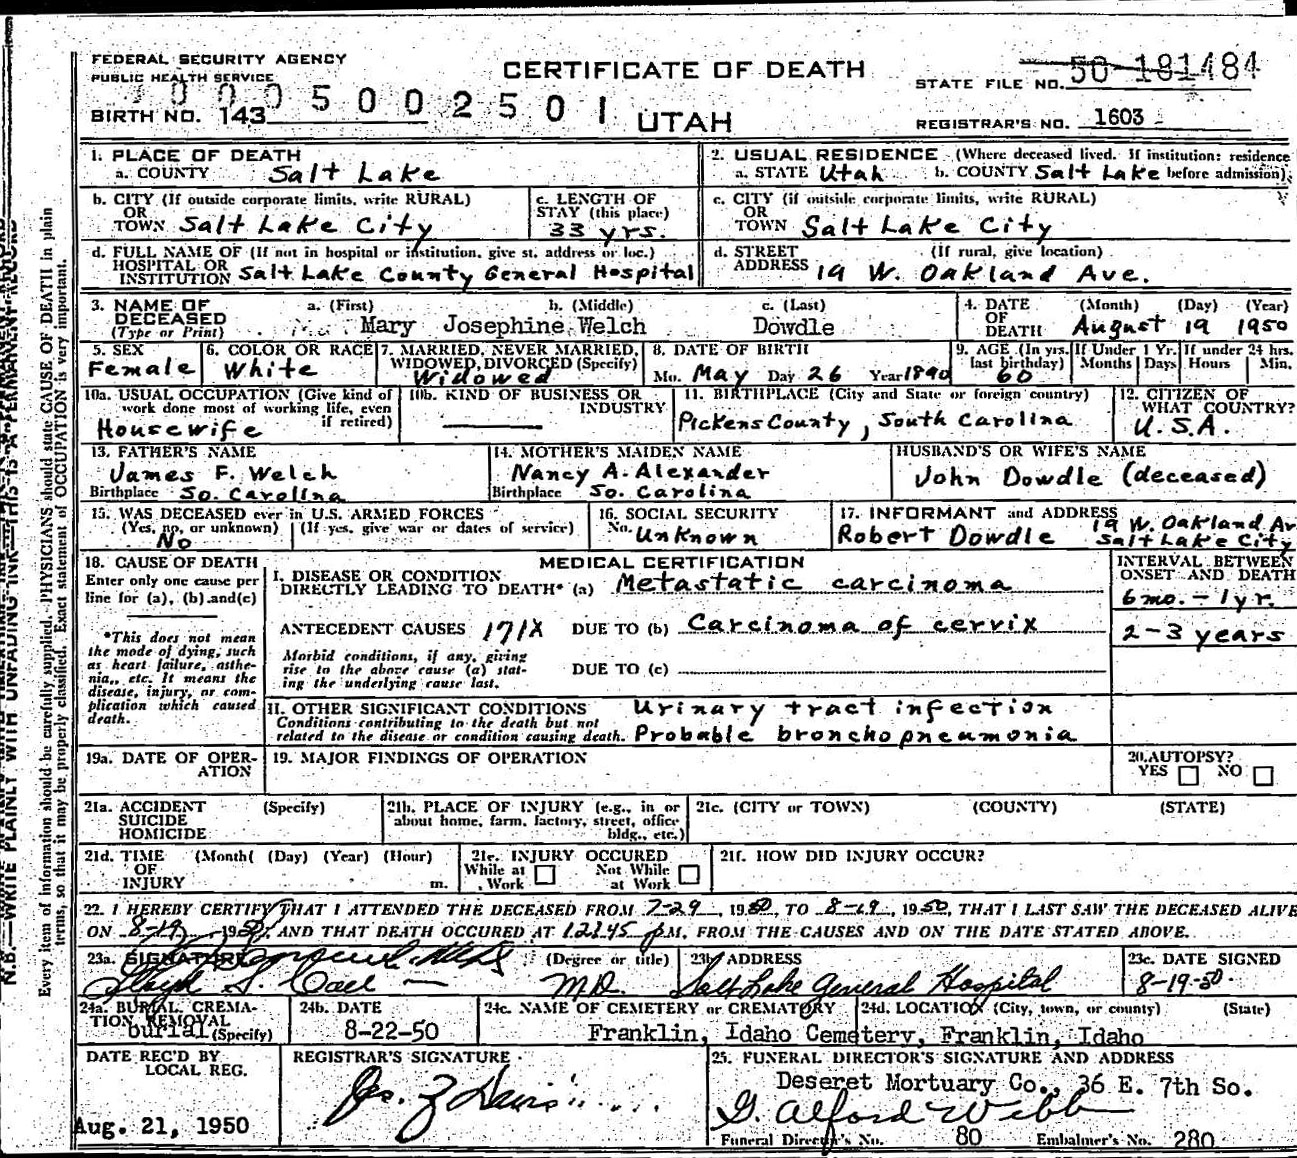 FEDERAL SECURITY AGENCY
PUBLIC HEALTH SERVICE
CERTIFICATE OF DEATH
STATE FILE NO. 50-181484
0005002501
BIRTH NO. 143
UTAH
REGISTRAR'S NO. 1603
1. PLACE OF DEATH
a. COUNTY Salt Lake
2. USUAL RESIDENCE (Where deceased lived. If institution: residence
a. STATE Utah b. COUNTY Salt Lake before admission)
b. CITY (If outside corporate limits, write RURAL)
OR
TOWN Salt Lake City
c. LENGTH OF
STAY (this place)
33 yrs.
c. CITY (if outside corporate limits, write RURAL)
OR
TOWN Salt Lake City
d. FULL NAME OF (If not in hospital or institution, give st. address or loc.)
HOSPITAL OR
INSTITUTION Salt Lake County General Hospital
d. STREET (If rural, give location)
ADDRESS 19 W. Oakland Ave.
3. NAME OF a. (First) b. (Middle) c. (Last)
DECEASED
(Type or Print) Mary Josephine Welch Dowdle
4. DATE (Month) (Day) (Year)
OF
DEATH August 19 1950
5. SEX
Female
6. COLOR OR RACE
White
7. MARRIED, NEVER MARRIED,
WIDOWED, DIVORCED (Specify)
Widowed
8. DATE OF BIRTH
Mo. May Day 26 Year 1890
9. AGE (In yrs. last birthday)
60
If Under 1 Yr.
Months Days
If under 24 hrs.
Hours Min.
10a. USUAL OCCUPATION (Give kind of
work done most of working life, even
if retired)
Housewife
10b. KIND OF BUSINESS OR
INDUSTRY
11. BIRTHPLACE (City and State or foreign country)
Pickens County, South Carolina
12. CITIZEN OF
WHAT COUNTRY?
U.S.A.
13. FATHER'S NAME
James F. Welch
Birthplace So. Carolina
14. MOTHER'S MAIDEN NAME
Nancy A. Alexander
Birthplace So. Carolina
HUSBAND'S OR WIFE'S NAME
John Dowdle (deceased)
15. WAS DECEASED ever in U.S. ARMED FORCES
(Yes, no, or unknown) (If yes, give war or dates of service)
No
16. SOCIAL SECURITY
No. Unknown
17. INFORMANT and ADDRESS
Robert Dowdle 19 W. Oakland Av
Salt Lake City
18. CAUSE OF DEATH
Enter only one cause per
line for (a), (b) and (c)
*This does not mean
the mode of dying, such
as heart failure, asthe-
nia, etc. It means the
disease, injury, or com-
plication which caused
death.
MEDICAL CERTIFICATION
INTERVAL BETWEEN
ONSET AND DEATH
I. DISEASE OR CONDITION
DIRECTLY LEADING TO DEATH* (a) Metastatic carcinoma
6 mo. - 1 yr.
ANTECEDENT CAUSES 171X DUE TO (b) Carcinoma of cervix
2-3 years
Morbid conditions, if any, giving
rise to the above cause (a) stat-
ing the underlying cause last.
DUE TO (c)
II. OTHER SIGNIFICANT CONDITIONS
Conditions contributing to the death but not
related to the disease or condition causing death.
Urinary tract infection
Probable bronchopneumonia
19a. DATE OF OPER-
ATION
19. MAJOR FINDINGS OF OPERATION
20. AUTOPSY?
YES NO
21a. ACCIDENT (Specify)
SUICIDE
HOMICIDE
21b. PLACE OF INJURY (e.g., in or
about home, farm, factory, street, office
bldg., etc.)
21c. (CITY or TOWN) (COUNTY) (STATE)
21d. TIME (Month( (Day) (Year) (Hour)
OF
INJURY m.
21e. INJURY OCCURED
While at Work
Not While at Work
21f. HOW DID INJURY OCCUR?
22. I HEREBY CERTIFY THAT I ATTENDED THE DECEASED FROM 7-29, 1950, TO 8-19, 1950, THAT I LAST SAW THE DECEASED ALIVE
ON 8-19, 1950, AND THAT DEATH OCCURED AT 12:45 P.M. FROM THE CAUSES AND ON THE DATE STATED ABOVE.
23a. SIGNATURE (Degree or title)
M.D.
23b. ADDRESS
Salt Lake General Hospital
23c. DATE SIGNED
8-19-50
24a. BURIAL, CREMA-
TION REMOVAL
burial (Specify)
24b. DATE
8-22-50
24c. NAME OF CEMETERY or CREMATORY
Franklin, Idaho Cemetery,
24d. LOCATION (City, town, or county) (State)
Franklin, Idaho
DATE REC'D BY
LOCAL REG.
Aug. 21, 1950
REGISTRAR'S SIGNATURE
25. FUNERAL DIRECTOR'S SIGNATURE AND ADDRESS
Deseret Mortuary Co., 36 E. 7th So.
G. Alford Webb
Funeral Director's No. 80 Embalmer's No. 280
Every item of information should be carefully supplied. PHYSICIANS should state CAUSE OF DEATH in plain
terms, so that it may be properly classified. Exact statement of OCCUPATION is very important.